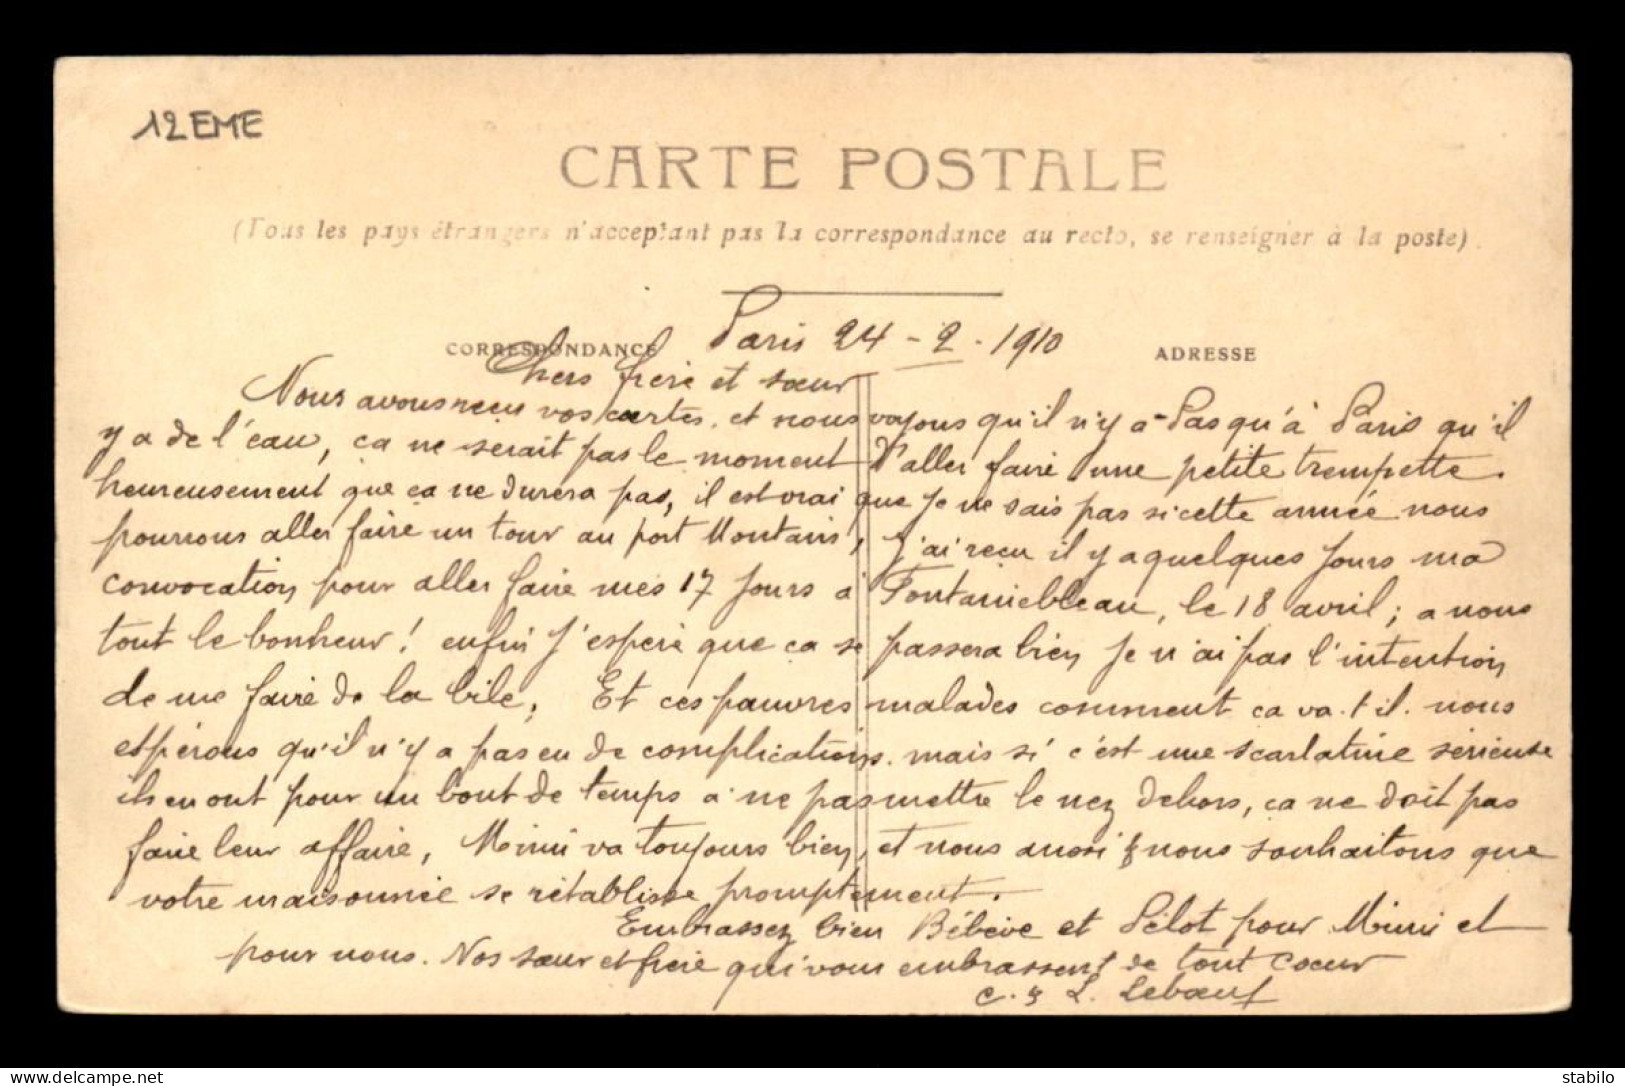 12EME
CARTE POSTALE
(Tous les pays étrangers n'acceptant pas la correspondance au recto, se renseigner à la poste)
CORRESPONDANCE
Paris 24 - 2 - 1910
ADRESSE
Chers frère et sœur
Nous avons reçu vos cartes, et nous voyons qu'il n'y a pas qu'à Paris qu'il
y a de l'eau, ça ne serait pas le moment d'aller faire une petite trempette.
heureusement que ça ne durera pas, il est vrai que je ne sais pas si cette année nous
pourrons aller faire un tour au port Montain, j'ai reçu il y a quelques jours ma
convocation pour aller faire mes 17 jours à Fontainebleau, le 18 avril; a nous
tout le bonheur! enfin j'espère que ça se passera bien je n'ai pas l'intention
de me faire de la bile, Et ces pauvres malades comment ça va-t-il. nous
espérons qu'il n'y a pas eu de complications. mais si c'est une scarlatine sérieuse
ils en ont pour un bout de temps à ne pas mettre le nez dehors, ça ne doit pas
faire leur affaire, Mimi va toujours bien, et nous aussi & nous souhaitons que
votre maisonnée se rétablisse promptement.
Embrassez bien Bébève et Pélot pour Mimi et
pour nous. Nos sœur et frère qui vous embrassent de tout cœur
C. & L. Lebœuf
stabilo